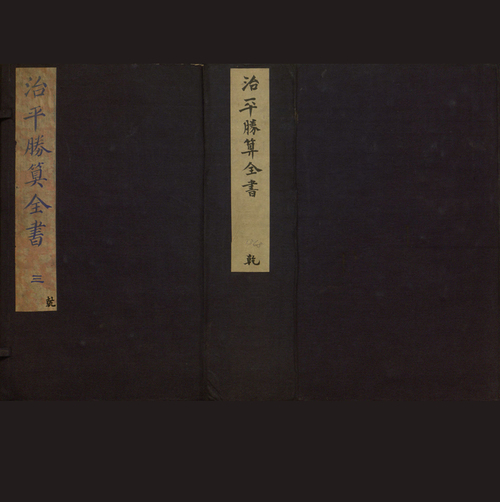 治平勝算全書
三
乾
治平勝算全書
乾